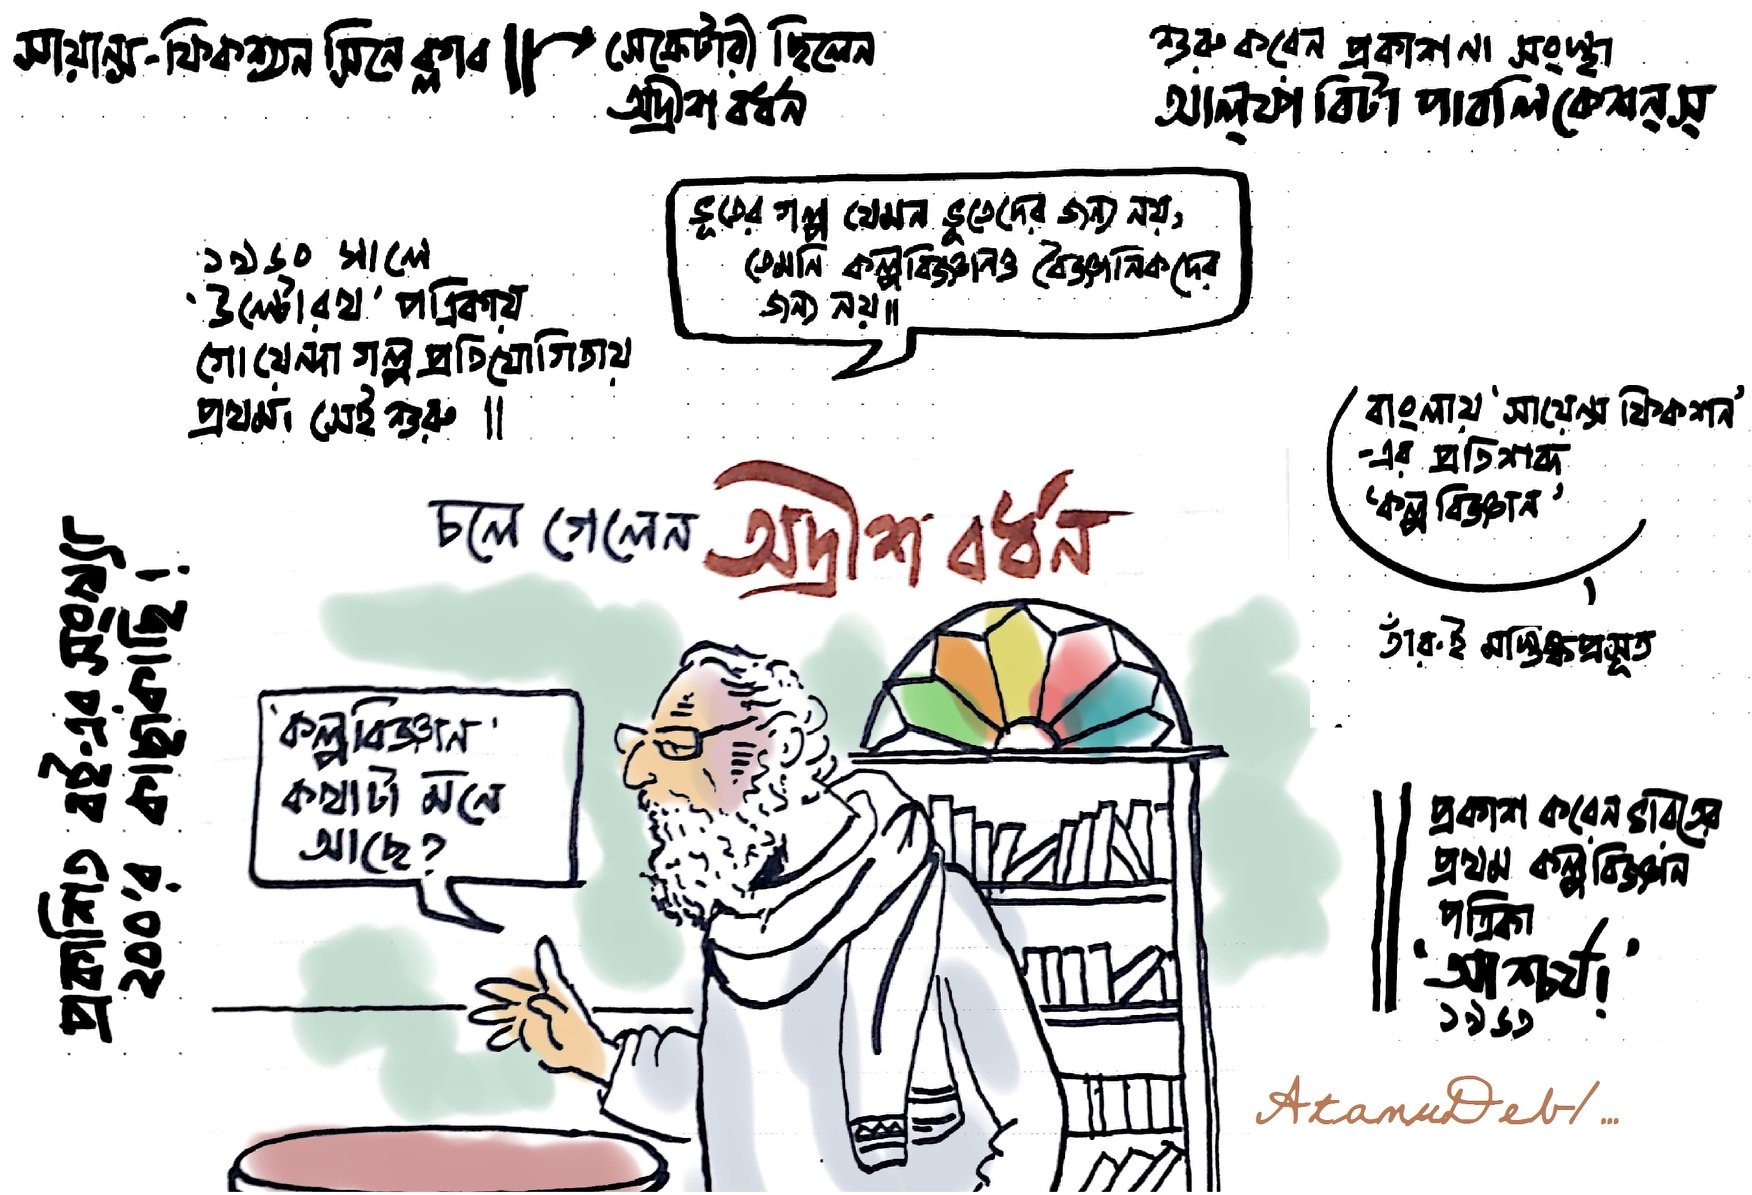 সায়ান্স-ফিকশ্যন সিনে ক্লাব || → সেক্রেটারী ছিলেন
অদ্রীশ বর্ধন
শুরু করেন প্রকাশনা সংস্থা
আল্ফা বিটা পাবলিকেশনস্
ভূতের গল্প যেমন ভুতেদের জন্য নয়,
তেমনি কল্পবিজ্ঞানও বৈজ্ঞানিকদের
জন্য নয়॥
১৯৬০ সালে
'উল্টোরথ' পত্রিকায়
গোয়েন্দা গল্প প্রতিযোগিতায়
প্রথম। সেই শুরু ||
বাংলায় 'সায়েন্স ফিকশন'
-এর প্রতিশব্দ
'কল্পবিজ্ঞান'
তাঁরই মস্তিষ্কপ্রসূত
চলে গেলেন অদ্রীশ বর্ধন
প্রকাশিত বই-এর সংখ্যা
২০০'র কাছাকাছি!
'কল্পবিজ্ঞান'
কথাটা মনে
আছে?
প্রকাশ করেন ভারতের
প্রথম কল্পবিজ্ঞান
পত্রিকা
'আশ্চর্য!'
১৯৬৩
AtanuDeb/...